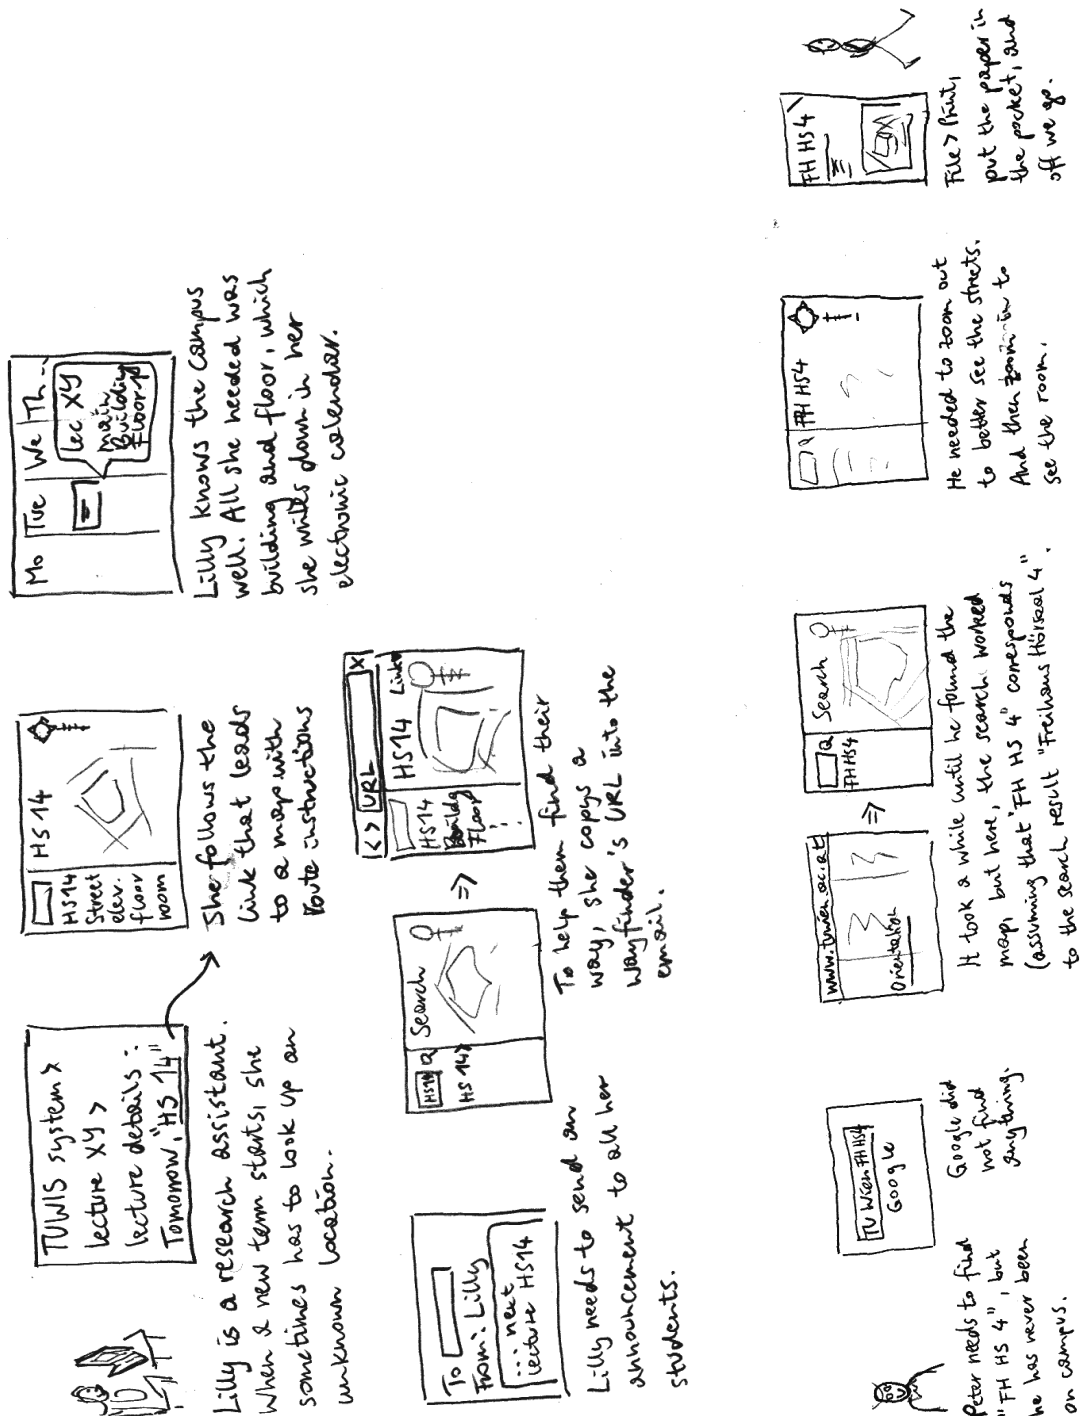 TUWIS system >
lecture XY >
lecture details :
Tomorrow, "HS 14"
Lilly is a research assistant.
When a new term starts, she
sometimes has to look up an
unknown location.
HS14
HS14
Street
elev.
floor
room
She follows the
link that leads
to a map with
route instructions
Mo Tue We Th...
lec XY
main
Building
Floor
Lilly knows the campus
well. All she needed was
building and floor, which
she writes down in her
electronic calendar.
To
From: Lilly
... next
lecture HS14
Lilly needs to send an
announcement to all her
students.
HS14 Search
HS14
=>
< > URL X
HS14 Link
HS14
Buildg
Floor
To help them find their
way, she copys a
wayfinder's URL into the
email.
Peter needs to find
"FH HS 4", but
he has never been
on campus.
TU Wien FH HS4
Google
Google did
not find
anything.
www.tuwien.ac.at
Orientation
=>
Search
FH HS4
It took a while until he found the
map, but here, the search worked
(assuming that "FH HS 4" corresponds
to the search result "Freihaus Hörsaal 4".
FH HS4
He needed to zoom out
to better see the streets.
And then zoom in to
see the room.
FH HS4
File > Print,
put the paper in
the pocket, and
off we go.